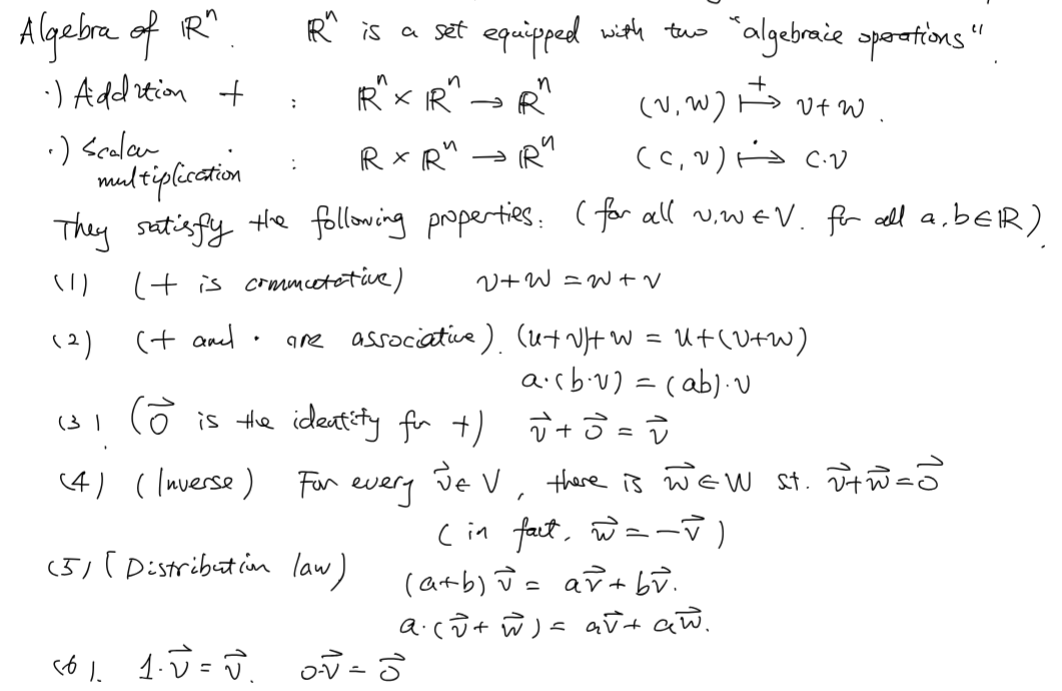 Algebra of ℝⁿ. ℝⁿ is a set equipped with two "algebraic operations".
·) Addition + : ℝⁿ × ℝⁿ → ℝⁿ (v, w) ↦⁺ v + w.
·) Scalar
multiplication · : ℝ × ℝⁿ → ℝⁿ (c, v) ↦ c·v
They satisfy the following properties: (for all v, w ∈ V. for all a, b ∈ ℝ)
(1) (+ is commutative) v + w = w + v
(2) (+ and · are associative). (u+v)+w = u+(v+w)
a·(b·v) = (ab)·v
(3) (0⃗ is the identity for +) v⃗ + 0⃗ = v⃗
(4) (Inverse) For every v⃗ ∈ V, there is w⃗ ∈ W st. v⃗+w⃗ = 0⃗
(in fact, w⃗ = -v⃗)
(5) (Distribution law) (a+b) v⃗ = av⃗ + bv⃗.
a·(v⃗ + w⃗) = av⃗ + aw⃗.
(6). 1·v⃗ = v⃗. 0·v⃗ = 0⃗